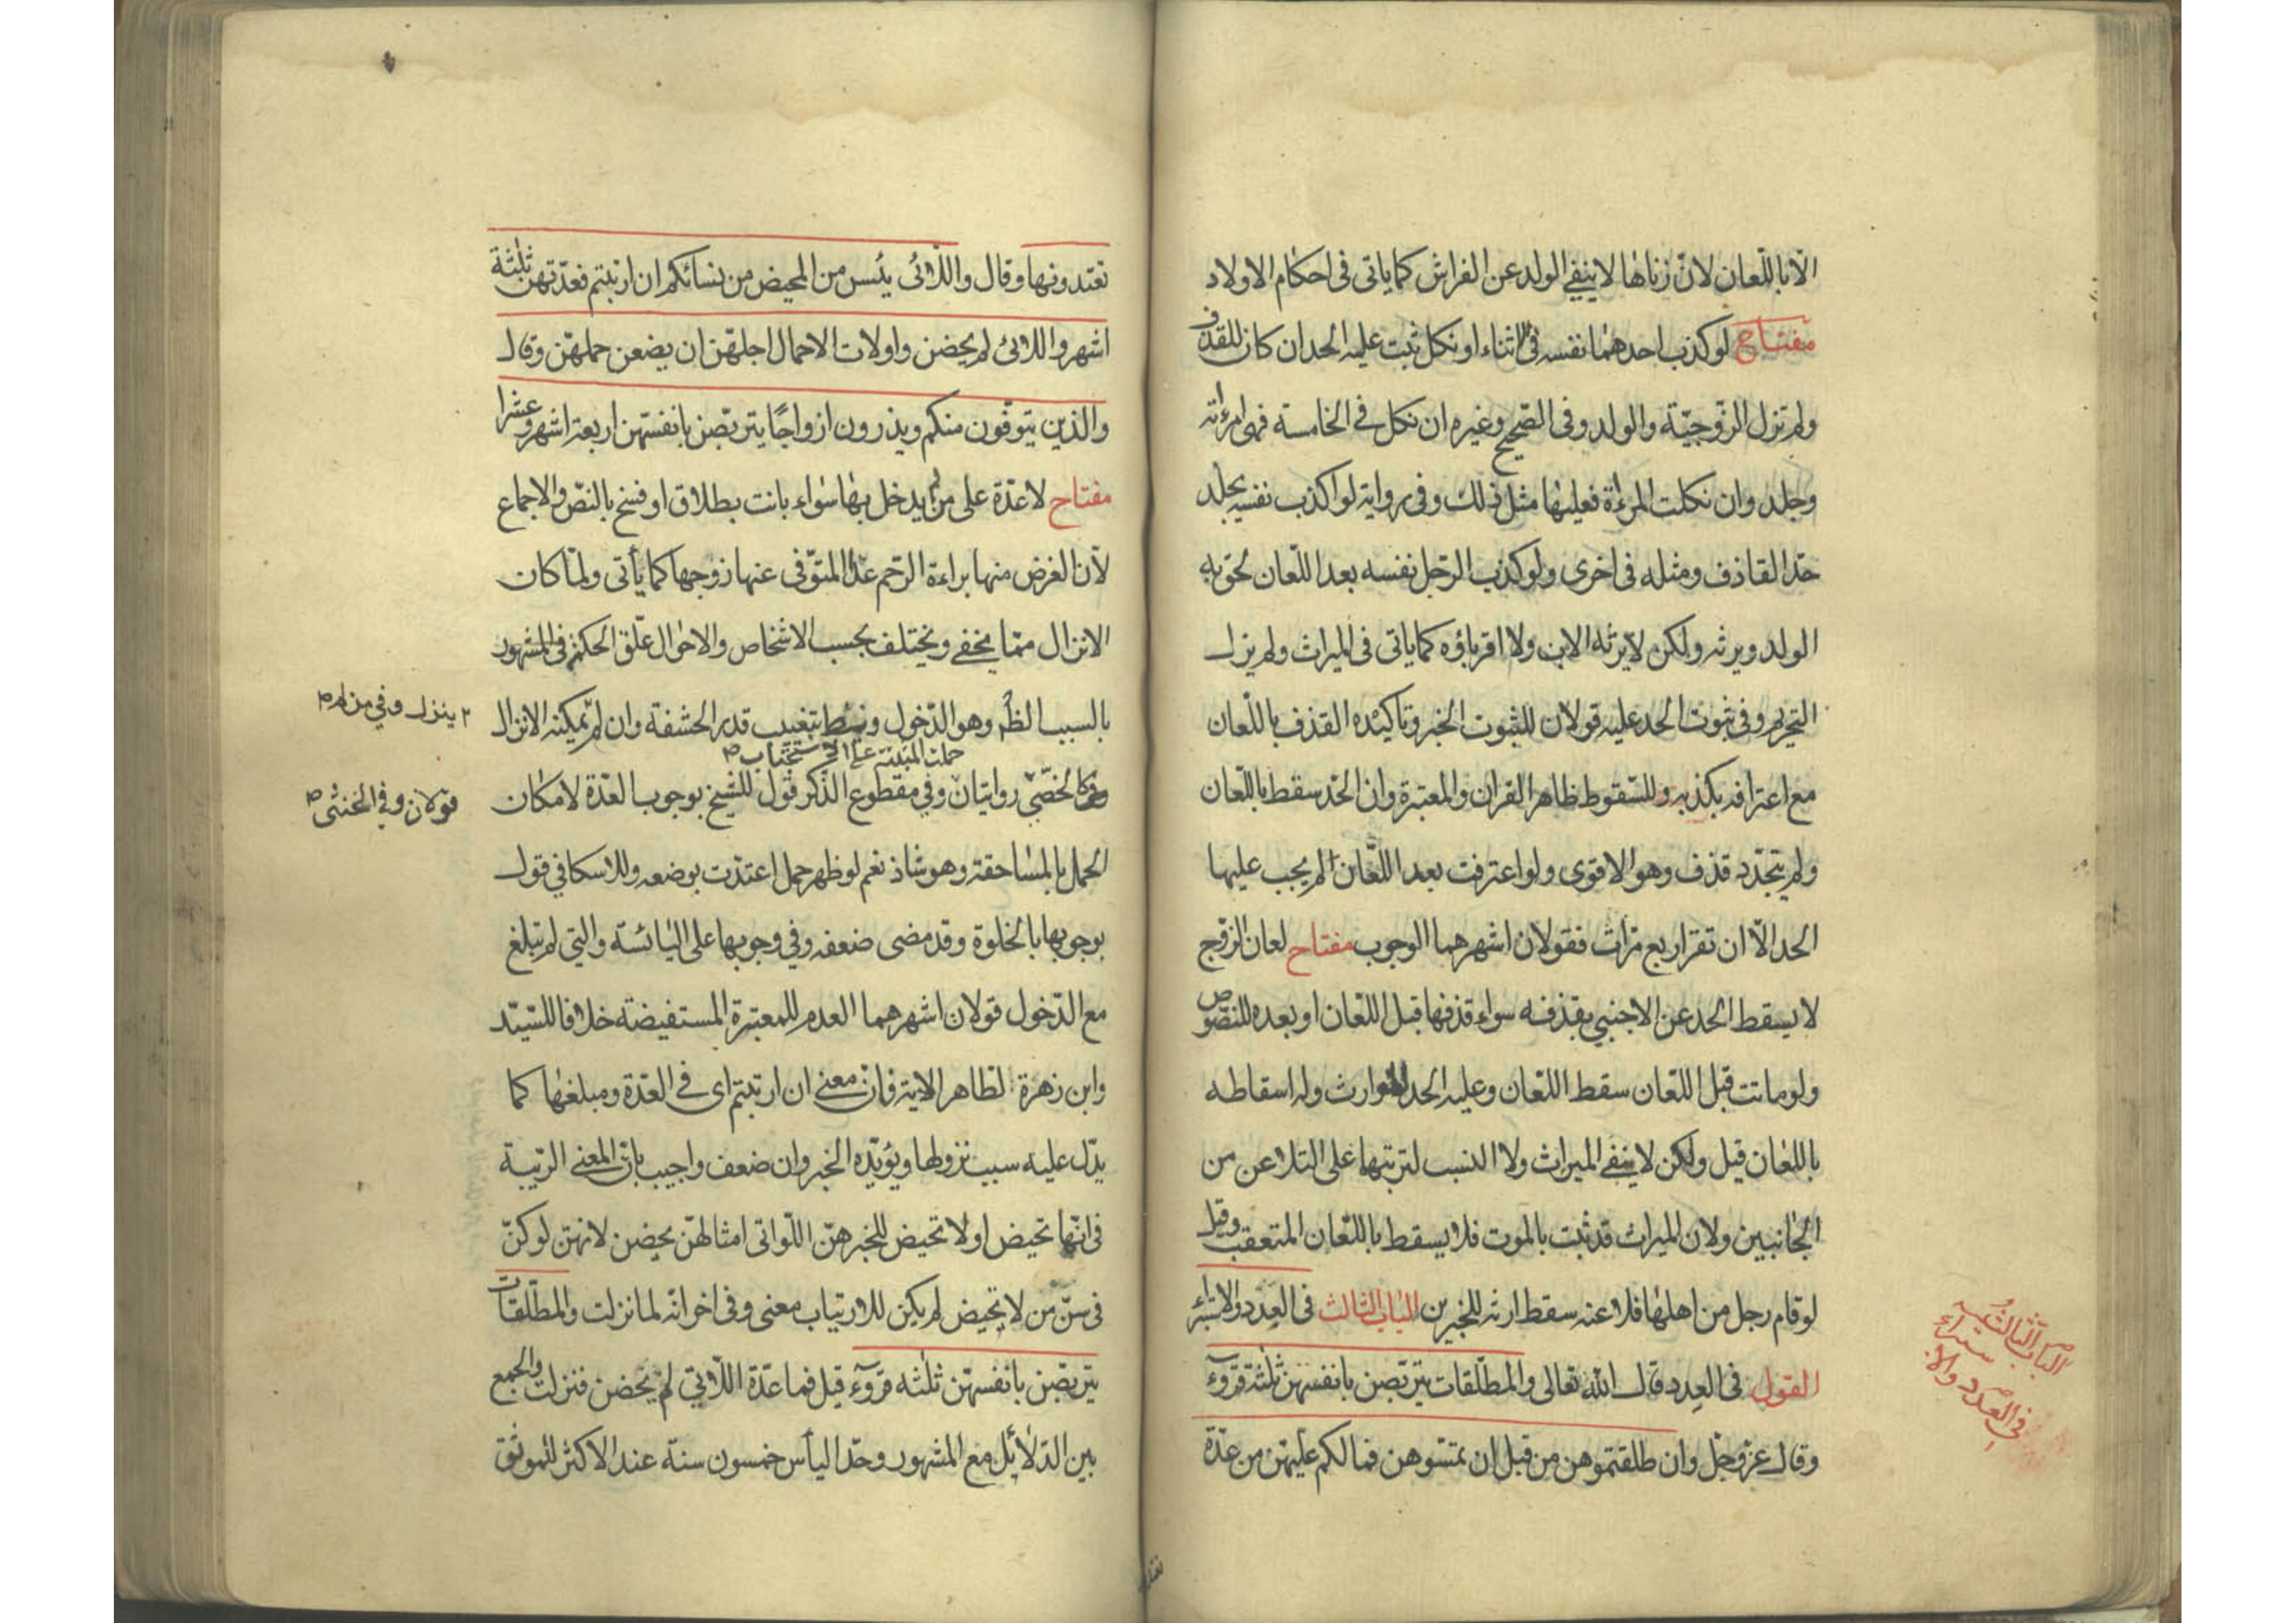 الا باللعان لان زناها لا ينفي الولد عن الفراش كما ياتى فى احكام الاولاد
مفتاح لو كذب احدهما نفسه فى الاثناء او نكل ثبت عليه الحد ان كان للقذف
ولم تزل الزوجيّة والولد وفى الصحيح وغيره ان نكل فى الخامسة فهى امرءاته
وجلد وان نكلت المرءة فعليها مثل ذلك وفى رواية لو اكذب نفسه يجلد
حدّ القاذف ومثله فى اخرى ولو كذب الرّجل نفسه بعد اللّعان لحق به
الولد ويرثه ولكن لا يرثه الابن ولا اقرباؤه كما ياتى فى الميراث ولم يزل
التحريم وفى ثبوت الحد عليه قولان للثبوت الخبر وتاكيده القذف باللّعان
مع اعترافه بكذبه وللسّقوط ظاهر القران والمعتبرة وان الحّد سقط باللّعان
ولم يتجّدد قذف وهو الاقوى ولو اعترفت بعد اللّعان لم يجب عليها
الحد الاّ ان تقرّ اربع مرّات فقولان اشهرهما الوجوب مفتاح لعان الزّوج
لا يسقط الحد عن الاجنبي بقذفه سواء قذفها قبل اللّعان او بعده للنصّوص
ولو ماتت قبل اللّعان سقط اللّعان وعليه الحد للوارث وله اسقاطه
باللعان قيل ولكن لا ينفي الميراث ولا النسب لترتبها على التلاعن من
الجانبين ولان الميراث قد ثبت بالموت فلا يسقط باللّعان المتعقب وقيل
لو قام رجل من اهلها فلاعنه سقط ارثه للخبرين الباب الثالث فى العدد والاستبراء
القول فى العدد قال الله تعالى والمطلّقات يتربّصن بانفسهنّ ثلثة قروء
وقال عزّ وجّل وان طلقتموهن من قبل ان تمسّوهن فما لكم عليهّن من عدّة
الباب الثالث
فى العدد والاستبراء
تعتدونها وقال واللّائى يئسن من المحيض من نسائكم ان ارتبتم فعدّتهن ثلثة
اشهر واللائى لم يحضن واولات الاحمال اجلهّن ان يضعن حملهّن وقال
والذين يتوّفون منكم ويذرون ازواجًا يتربّصن بانفسهّن اربعة اشهر وعشرا
مفتاح لا عدّة على من لم يدخل بها سواء بانت بطلاق او فسخ بالنصّ والاجماع
لأن الغرض منها براءة الرّحم عدا المتوّفى عنها زوجها كما يأتى ولمّا كان
الانزال ممّا يخفى ويختلف بحسب الاشخاص والاحوال علّق الحكم فى المشهور
بالسبب الظاهر وهو الدّخول بتغييب قدر الحشفة وان لم يمكنه الانزال
ينزل وفي من لم
حملت المبتنة على الاستحباب
كالخصّي روايتان وفي مقطوع الذّكر قول للشيخ بوجوب العدّة لامكان
قولان وفى الخنثى
الحمل بالمساحقة وهو شاذ نعم لو ظهر حمل اعتدّت بوضعه وللاسكافي قول
بوجوبها بالخلوة وقد مضى ضعفه وفي وجوبها على اليائسة والتي لم تبلغ
مع الدّخول قولان اشهرهما العدم للمعتبرة المستفيضة خلافا للسّيّد
وابن زهرة لظاهر الاية فانّ معنى ان ارتبتم اى فى العدّة ومبلغها كما
يدّل عليه سبب نزولها ويؤيّده الخبر وان ضعف واجيب بانّ المعنى الرّيبة
فى انّها تحيض او لا تحيض للخبر هنّ اللّواتى امثالهنّ يحضن لانهنّ لو كنّ
فى سنّ من لا تحيض لم يكن للارتياب معنى وفى اخر انّه لما نزلت والمطلّقات
يتربّصن بانفسهّن ثلثة قروء قيل فما عدّة اللّاتي لم يحضن فنزلت والجمع
بين الدّلائل مع المشهور وحدّ اليأس خمسون سنة عند الاكثر للموثق